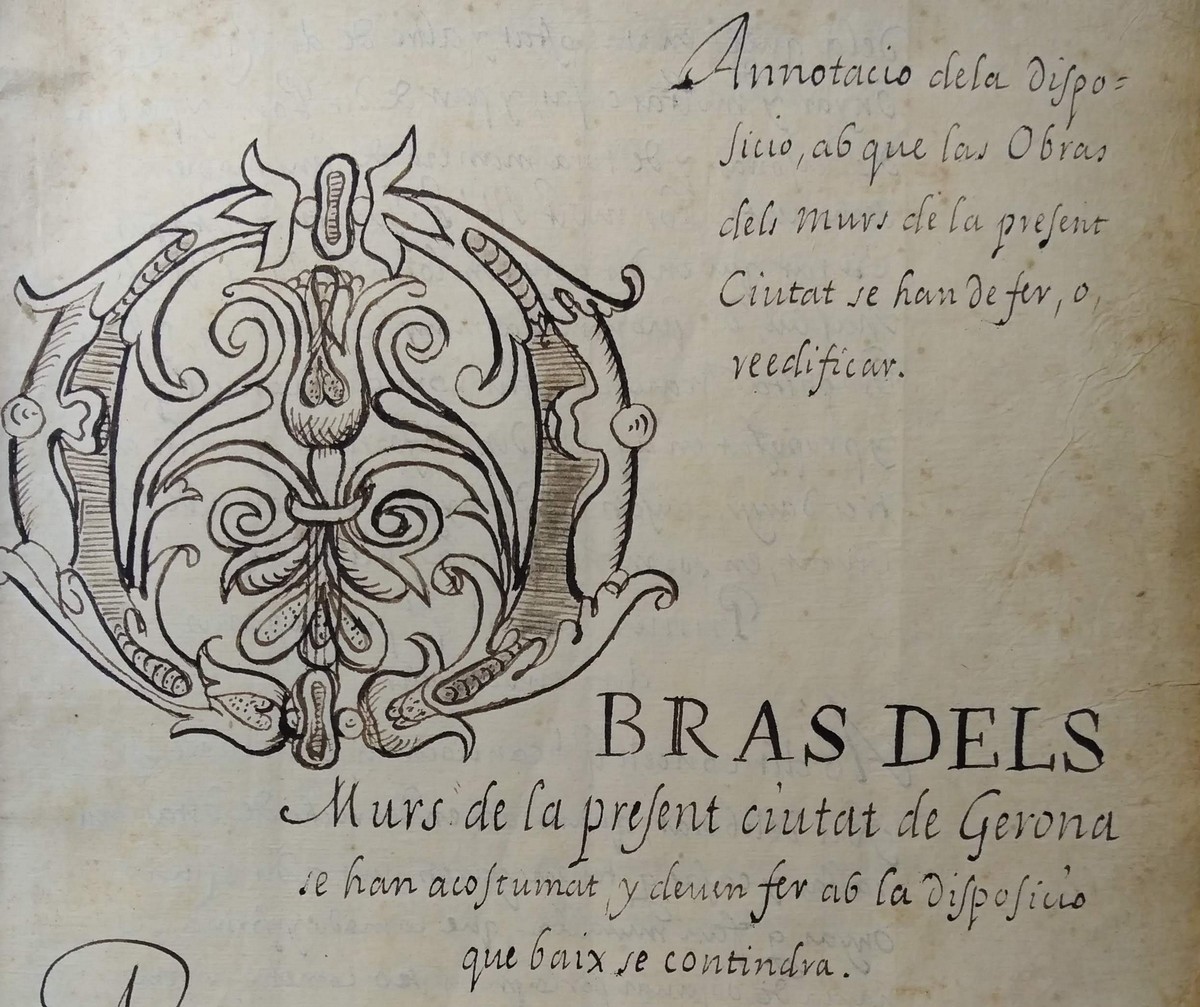 Annotacio dela dispo=
sicio, ab que las Obras
dels murs de la present
Ciutat se han de fer, o,
reedificar.
OBRAS DELS
Murs de la present ciutat de Gerona
se han acostumat, y deuen fer ab la disposicio
que baix se contindra.